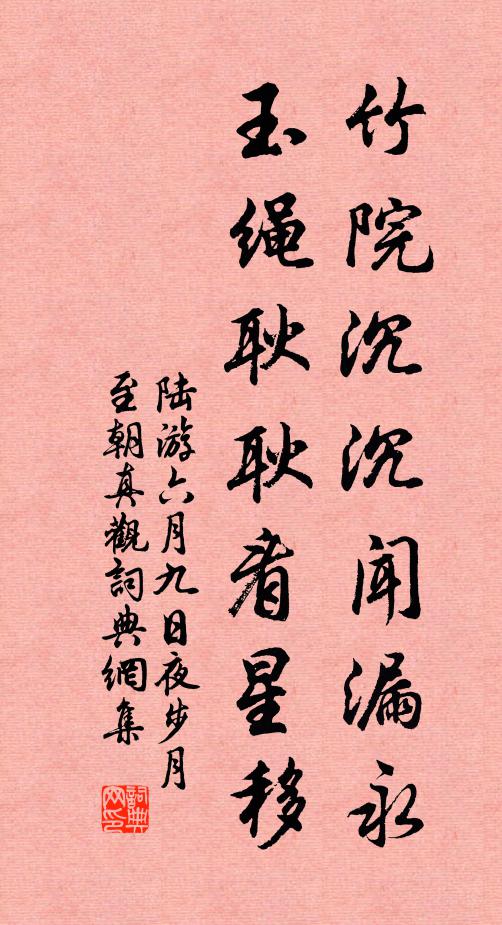 竹院沉沉闻漏永
玉绳耿耿看星移
陆游六月九日夜步月
至朝真觀詞典網集
詞典网印